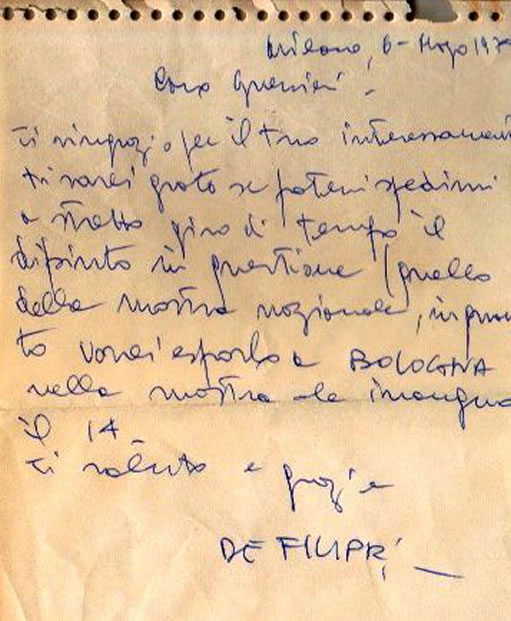 Milano, 6-Mago 197
Caro Guerrieri -
Ti ringrazio per il tuo interessamen
ti sarei grato se potessi spedirmi
a stretto giro di tempo il
dipinto in questione (quello
della mostra nazionale, in quan
to vorrei esporlo a BOLOGNA
nella mostra che inaugura
il 14
Ti saluto e grazie
DE FILIPPI